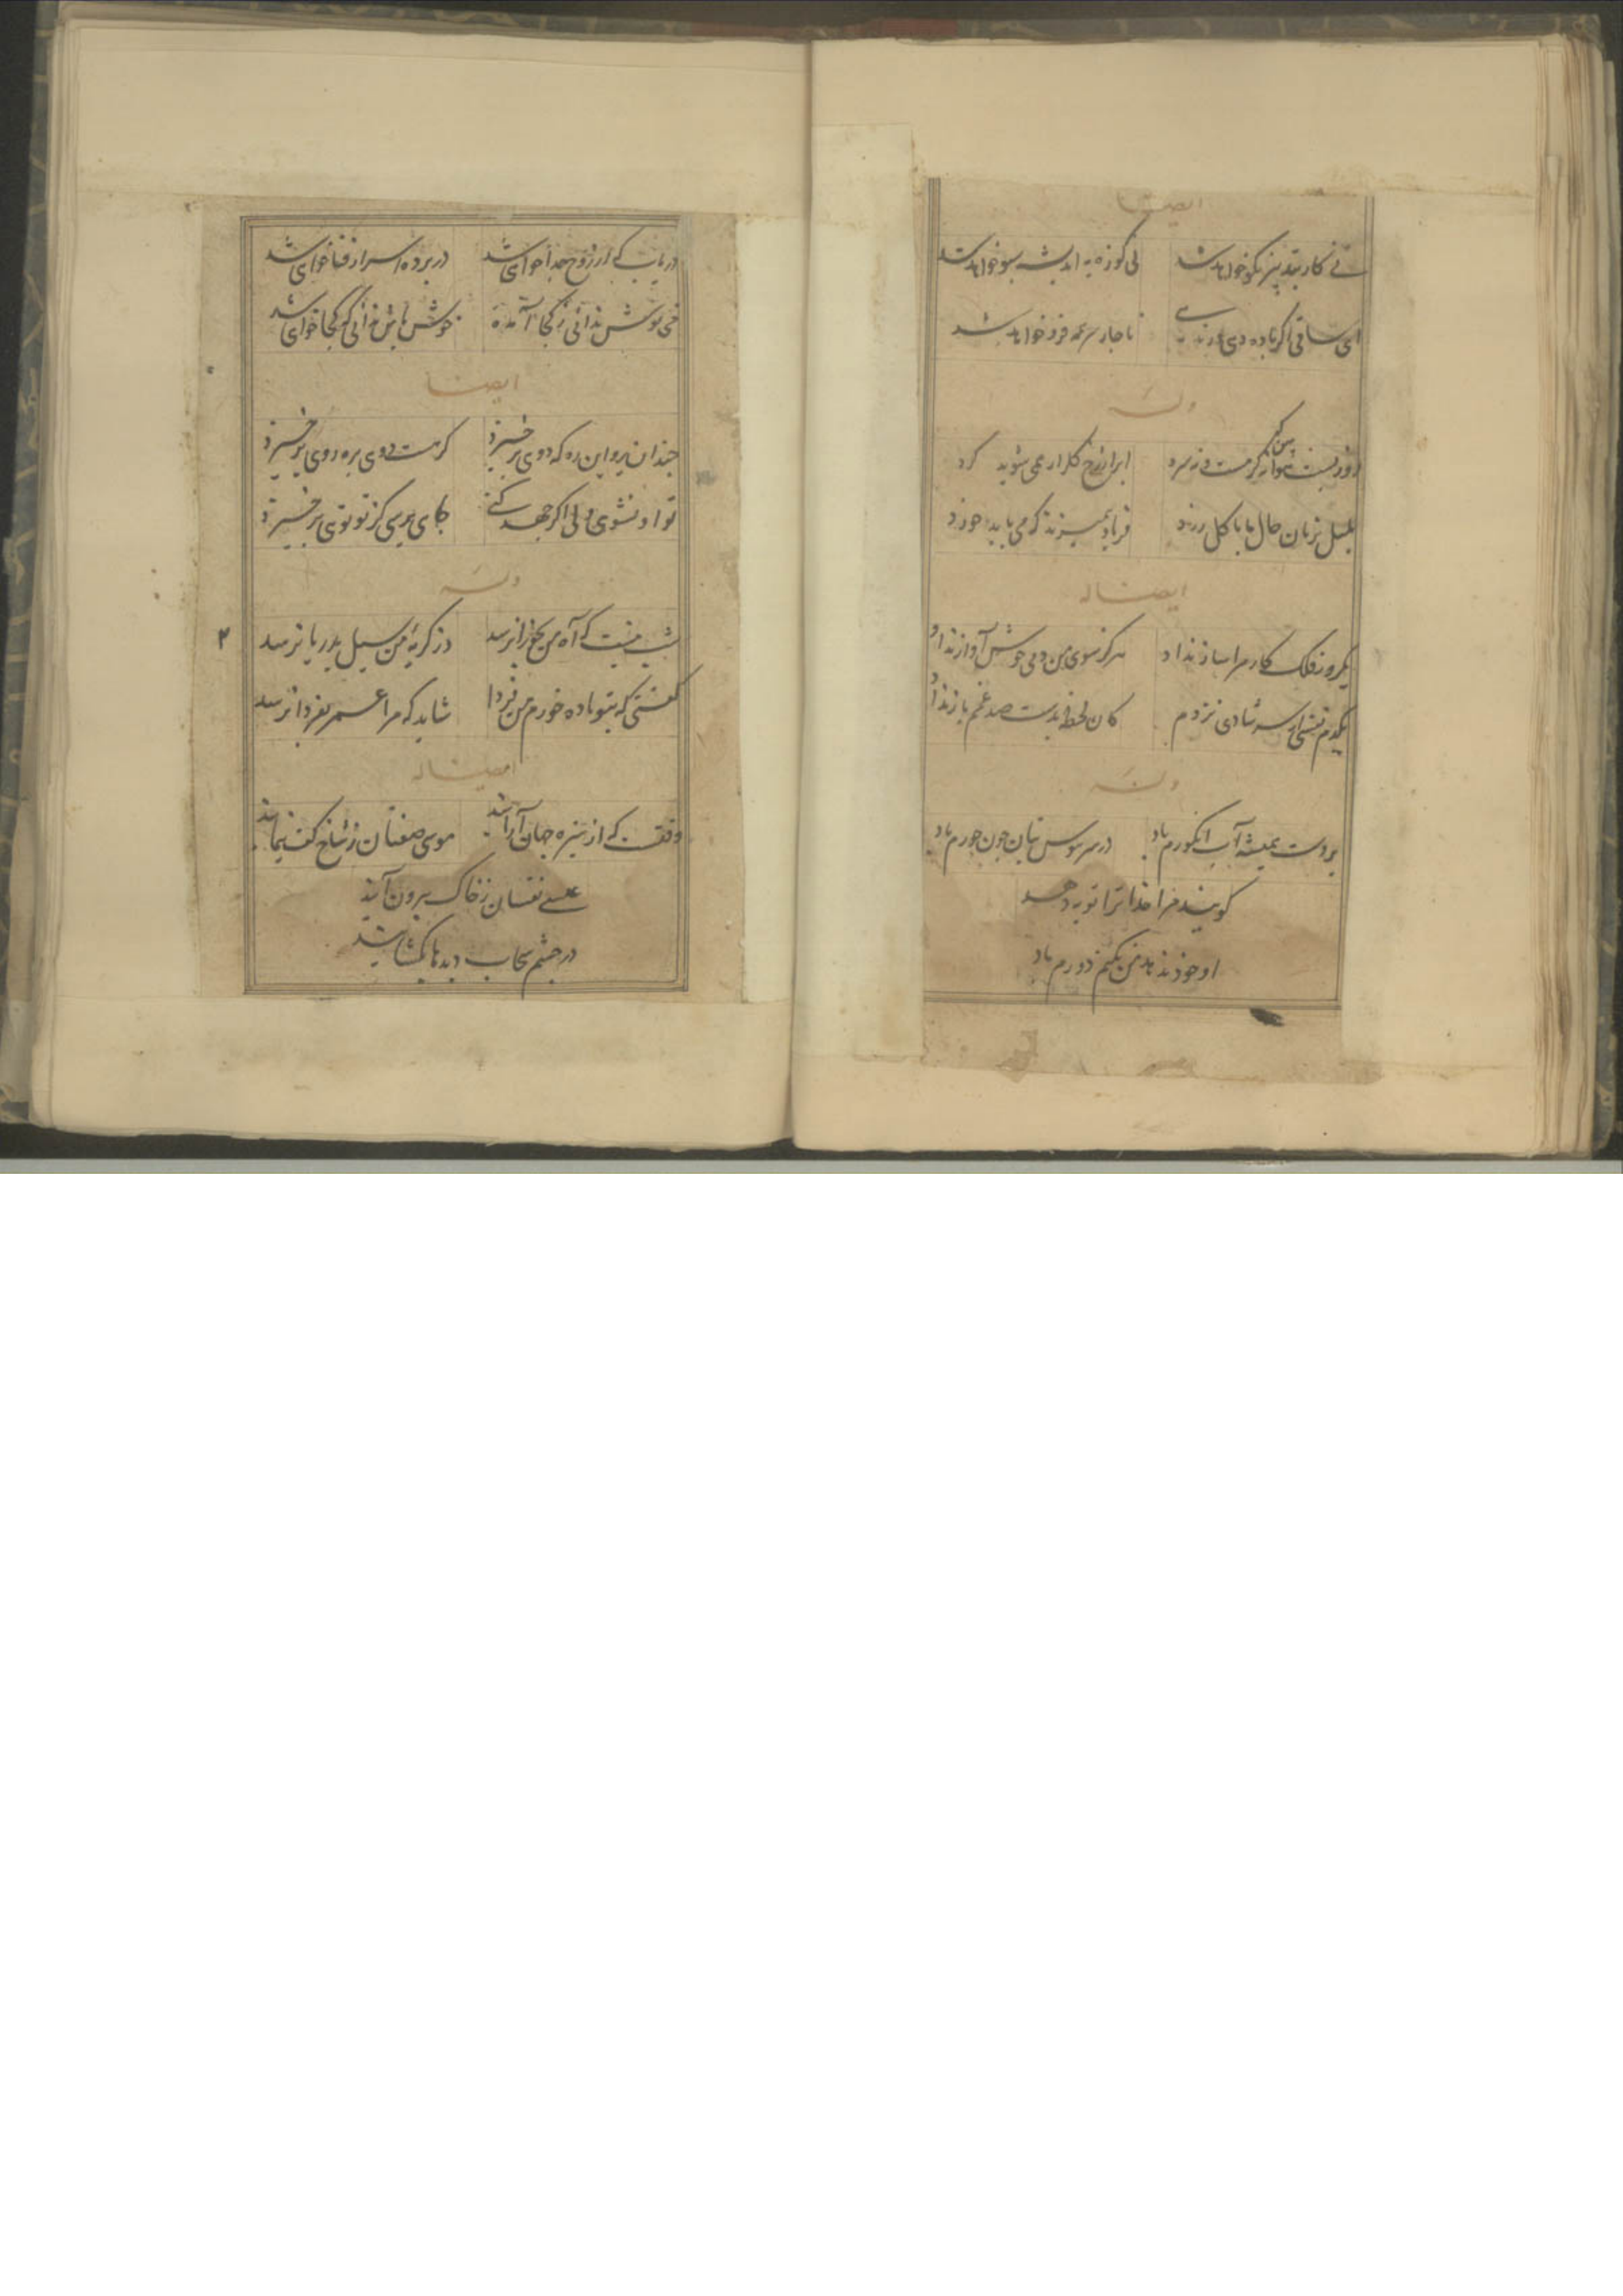 ایضا
نی کار بتدبیر نکو خواهد شد
نی کوزه به اندیشه سبو خواهد شد
ای ساقی اگر باده دمی
ناچار سر همه فرو خواهد شد
وله
روزیست خوش و هوا نه گرمست و نه سرد
ابر از رخ گلزار همی شوید گرد
بلبل بزبان حال با گل
فریاد همیزند که می باید خورد
ایضا له
یکروز فلک کار مرا ساز نداد
هرگز سوی من دمی خوش آواز نداد
یکدم نفسی از سر شادی نزدم
کان لحظه بدست صد غم باز نداد
وله
بر دست همیشه آب انگورم باد
در سر هوس بتان چون حورم باد
گویند مرا خدا ترا توبه دهد
او خود ندهد من نکنم دورم باد
دریاب که از روح جدا خواهی شد
در پرده اسرار فنا خواهی شد
می نوش ندانی ز کجا آمده
خوش باش ندانی که کجا خواهی شد
ایضا
چندان برو این ره که دوی برخیزد
گر هست دوی بره روی برخیزد
تو او نشوی ولی اگر جهد کنی
جای برسی کز تو توی برخیزد
وله
شب نیست که آه من بجوزا نرسد
وز گریه من سیل بدریا نرسد
گفتی که بتو باده خورم من فردا
شاید که مرا عمر بفردا نرسد
۲
ایضا له
وقتست که از سبزه جهان آرایند
موسی صفتان ز شاخ کف بنمایند
عیسی نفسان ز خاک بیرون آیند
در چشم سحاب دیدها بگشایند